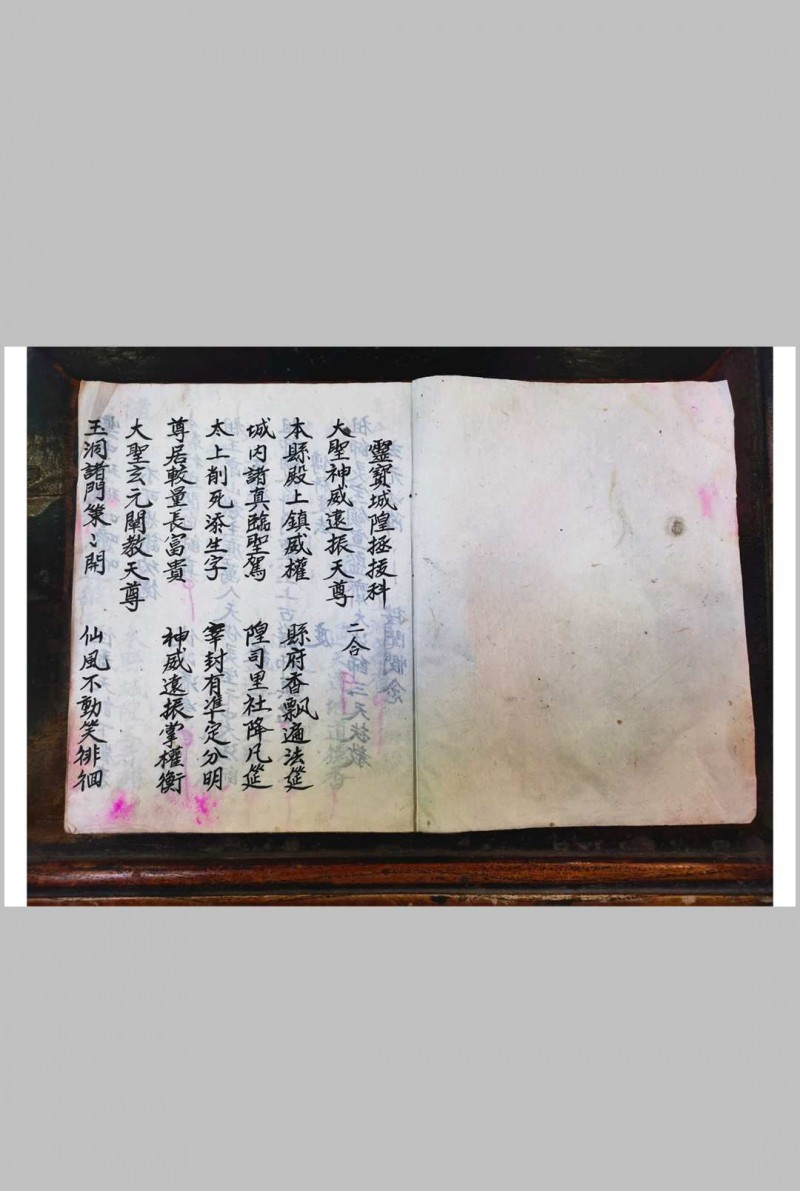 靈寶城隍拯拔科
大聖神威遠振天尊 二合
本縣殿上鎮威權 縣府香飄適法筵
城内諸真臨聖駕 隍司里社降凡筵
太上削死添生字 宰封有準定分明
尊居較量長富貴 神威遠振掌權衡
大聖玄元闡教天尊
玉洞諸門策〻開 仙風不動笑徘徊